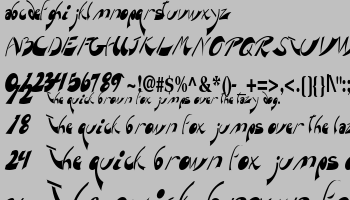 abcdefghijklmnopqrstuvwxyz
ABCDEFGHIJKLMNOPQRSTUVW
0123456789 ~!@#$%^&*()-_+=>,<.(){}/\":;
12 The quick brown fox jumps over the lazy dog.
18 The quick brown fox jumps over the laz
24 The quick brown fox jumps o